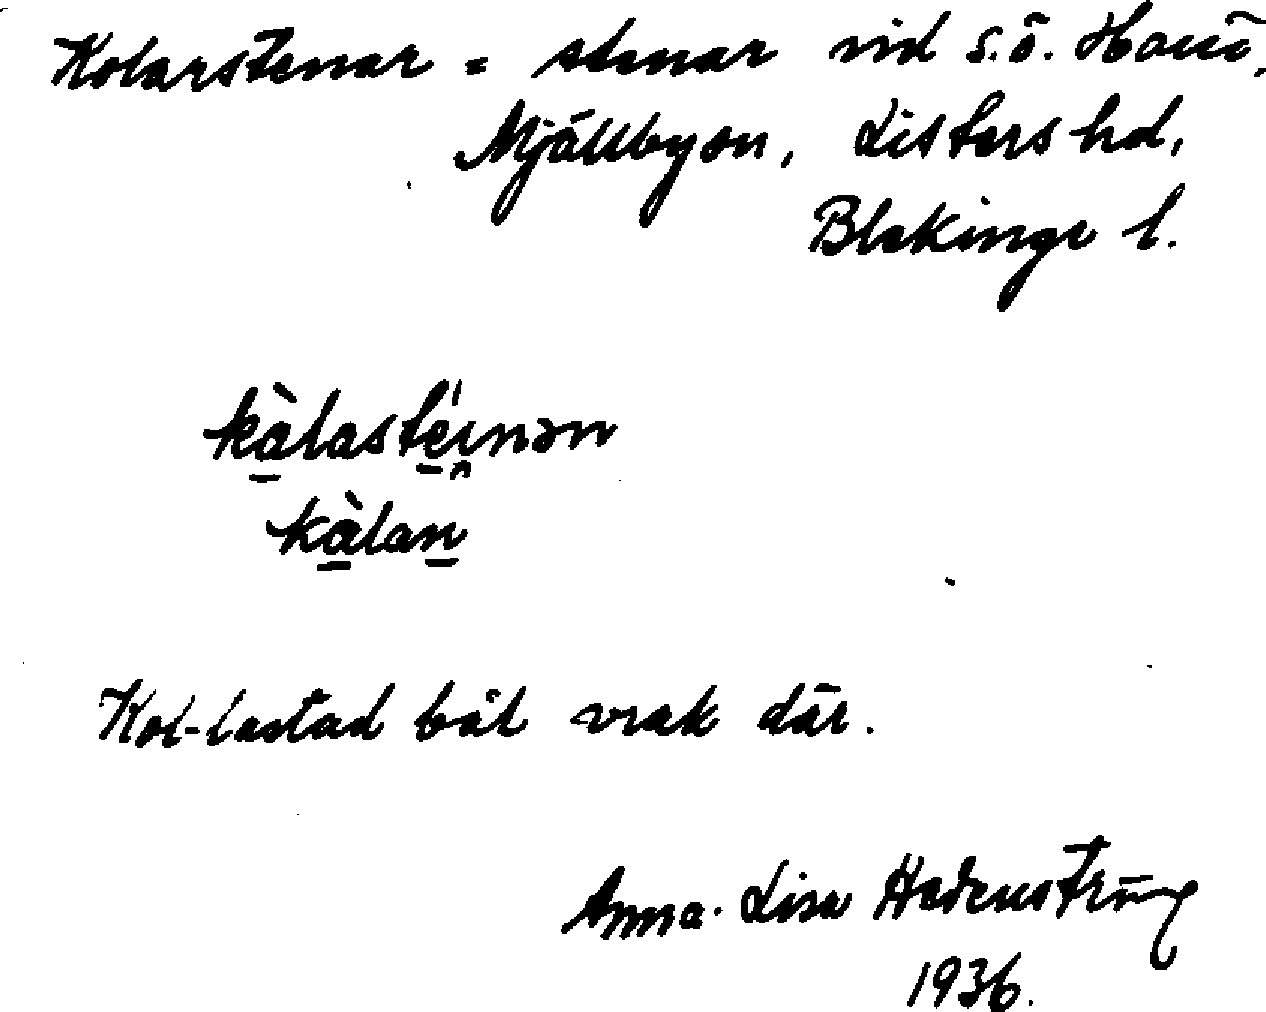 Kolarstenar = stenar vid s.ö. Hanö,
Mjällby sn, Listers hd,
Blekinge l.
kàlastéi̯nən
kàlan
Kol-lastad båt vrak där.
Anna-Lisa
1936.